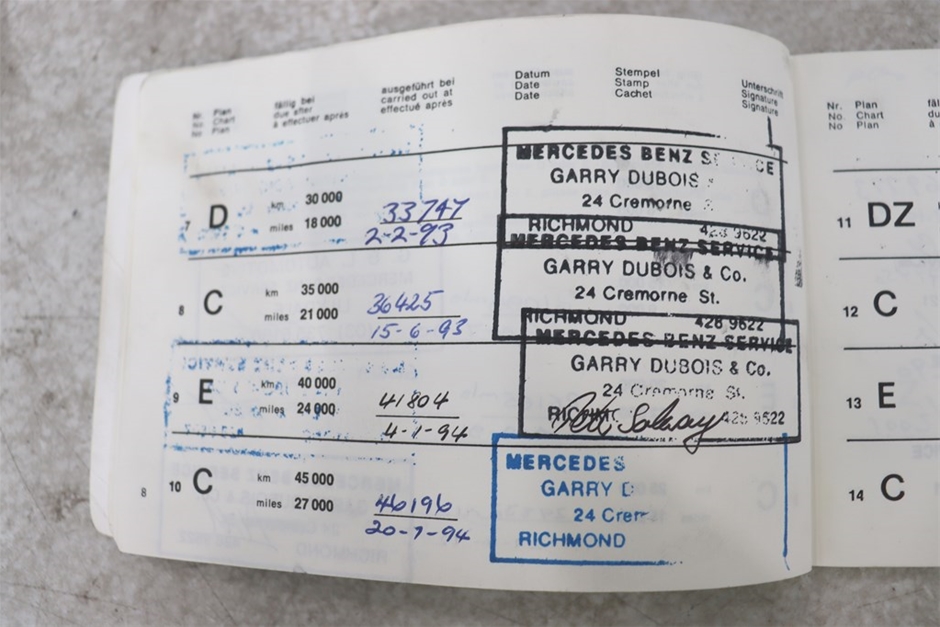 Nr. Plan fällig bei ausgeführt bei Datum Stempel Unterschrift
No Chart due after carried out at Date Stamp Signature
No Plan à effectuer après effectué après Date Cachet Signature
7 D km 30 000 33747
miles 18 000 2-2-93
MERCEDES BENZ SERVICE
GARRY DUBOIS
24 Cremorne
RICHMOND 428 9622
8 C km 35 000 36425
miles 21 000 15-6-93
MERCEDES BENZ SERVICE
GARRY DUBOIS & Co.
24 Cremorne St.
RICHMOND 428 9622
9 E km 40 000 41804
miles 24 000 4-1-94
MERCEDES BENZ SERVICE
GARRY DUBOIS & Co.
24 Cremorne St.
428 9622
10 C km 45 000 46196
miles 27 000 20-7-94
MERCEDES
GARRY D
24 Crem
RICHMOND
8
Nr. Plan
No Chart
No Plan
11 DZ
12 C
13 E
14 C